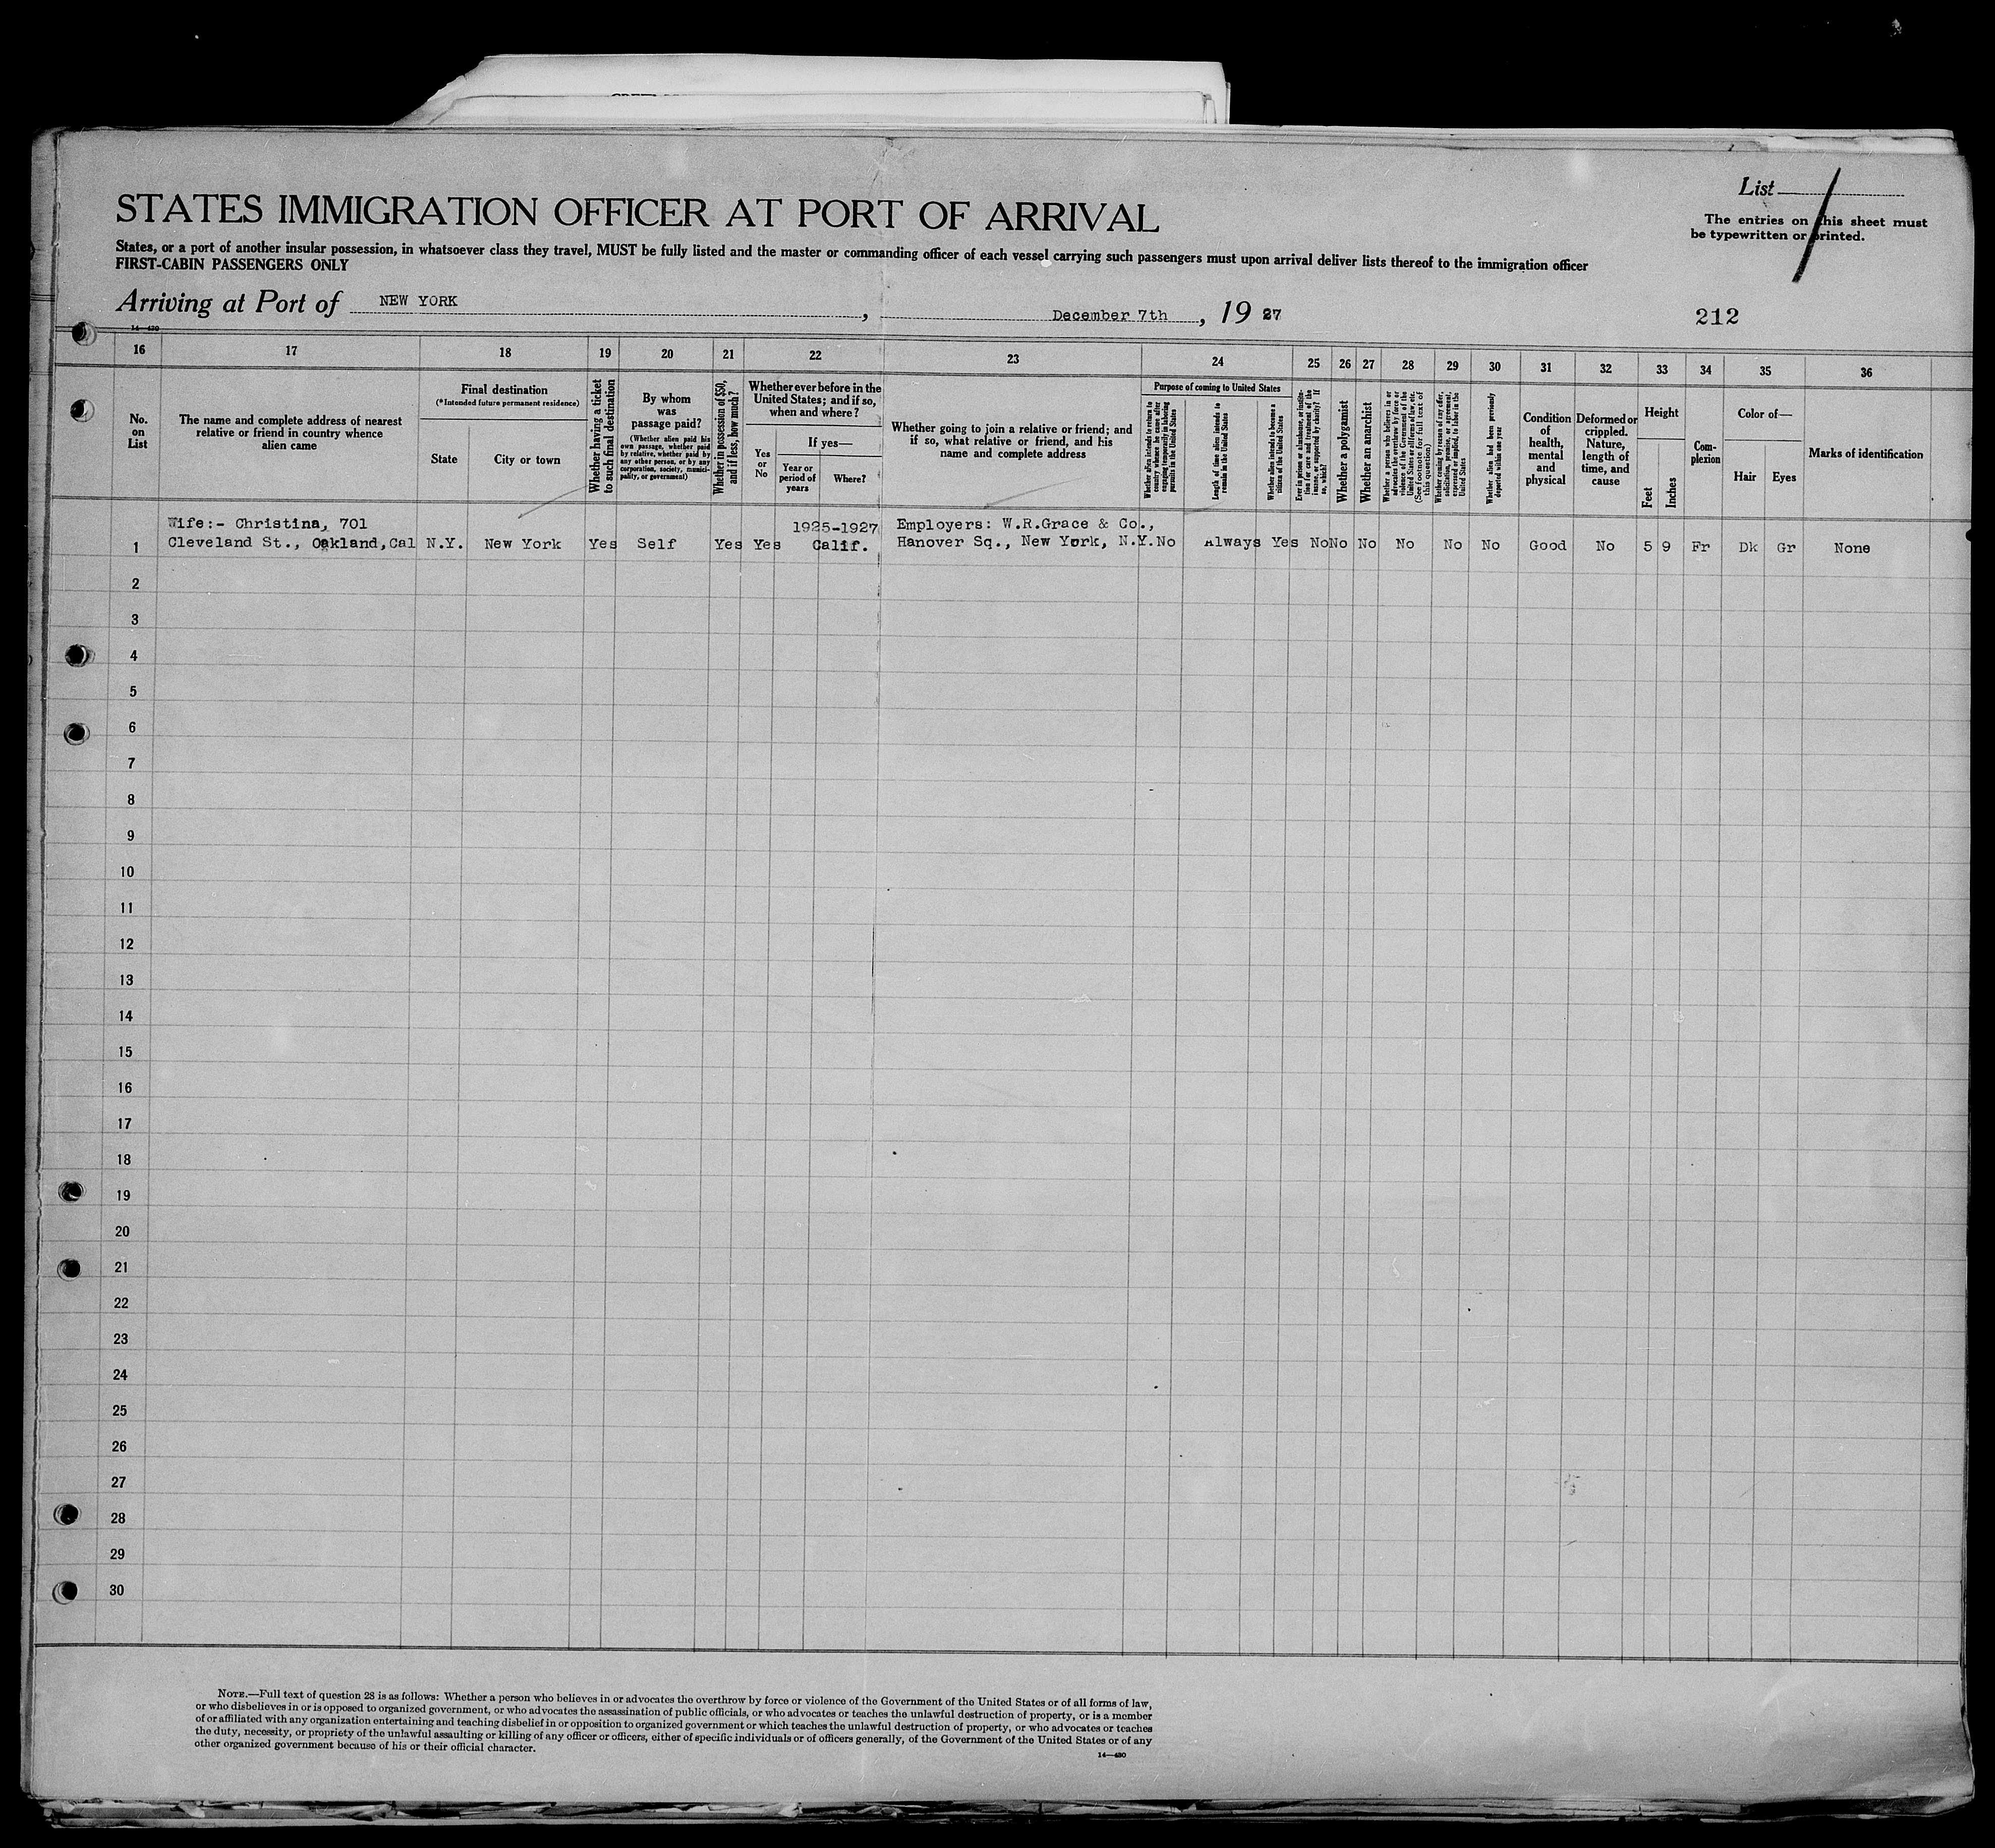 List
The entries on this sheet must
be typewritten or printed.
STATES IMMIGRATION OFFICER AT PORT OF ARRIVAL
States, or a port of another insular possession, in whatsoever class they travel, MUST be fully listed and the master or commanding officer of each vessel carrying such passengers must upon arrival deliver lists thereof to the immigration officer
FIRST-CABIN PASSENGERS ONLY
Arriving at Port of NEW YORK, December 7th, 19 27
212
14—430
16 17 18 19 20 21 22 23 24 25 26 27 28 29 30 31 32 33 34 35 36
No.
on
List
The name and complete address of nearest
relative or friend in country whence
alien came
Final destination
(*Intended future permanent residence)
State
City or town
Whether having a ticket
to such final destination
By whom
was
passage paid?
(Whether alien paid his
own passage, whether paid
by relative, whether paid by
any other person, or by any
corporation, society, munici-
pality, or government)
Whether in possession of $50,
and if less, how much?
Whether ever before in the
United States; and if so,
when and where?
Yes
or
No
If yes—
Year or
period of
years
Where?
Whether going to join a relative or friend; and
if so, what relative or friend, and his
name and complete address
Purpose of coming to United States
Whether alien intends to return to
country whence he came after
engaging temporarily in laboring
pursuits in the United States
Length of time alien intends to
remain in the United States
Whether alien intends to become a
citizen of the United States
Ever in prison or almshouse, or institu-
tion for care and treatment of the
insane, or supported by charity? If
so, which?
Whether a polygamist
Whether an anarchist
Whether a person who believes in or
advocates the overthrow by force or
violence of the Government of the
United States or all forms of law, etc.
(See footnote for full text of
this question)
Whether coming by reason of any offer,
solicitation, promise, or agreement,
expressed or implied, to labor in the
United States
Whether alien had been previously
deported within one year
Condition
of
health,
mental
and
physical
Deformed or
crippled.
Nature,
length of
time, and
cause
Height
Feet
Inches
Com-
plexion
Color of—
Hair
Eyes
Marks of identification
Wife:- Christina, 701 1925-1927 Employers: W.R.Grace & Co.,
1 Cleveland St., Oakland,Cal N.Y. New York Yes Self Yes Yes Calif. Hanover Sq., New York, N.Y. No Always Yes No No No No No No Good No 5 9 Fr Dk Gr None
2
3
4
5
6
7
8
9
10
11
12
13
14
15
16
17
18
19
20
21
22
23
24
25
26
27
28
29
30
NOTE.—Full text of question 28 is as follows: Whether a person who believes in or advocates the overthrow by force or violence of the Government of the United States or of all forms of law,
or who disbelieves in or is opposed to organized government, or who advocates the assassination of public officials, or who advocates or teaches the unlawful destruction of property, or is a member
of or affiliated with any organization entertaining and teaching disbelief in or opposition to organized government or which teaches the unlawful destruction of property, or who advocates or teaches
the duty, necessity, or propriety of the unlawful assaulting or killing of any officer or officers, either of specific individuals or of officers generally, of the Government of the United States or of any
other organized government because of his or their official character.
14—430